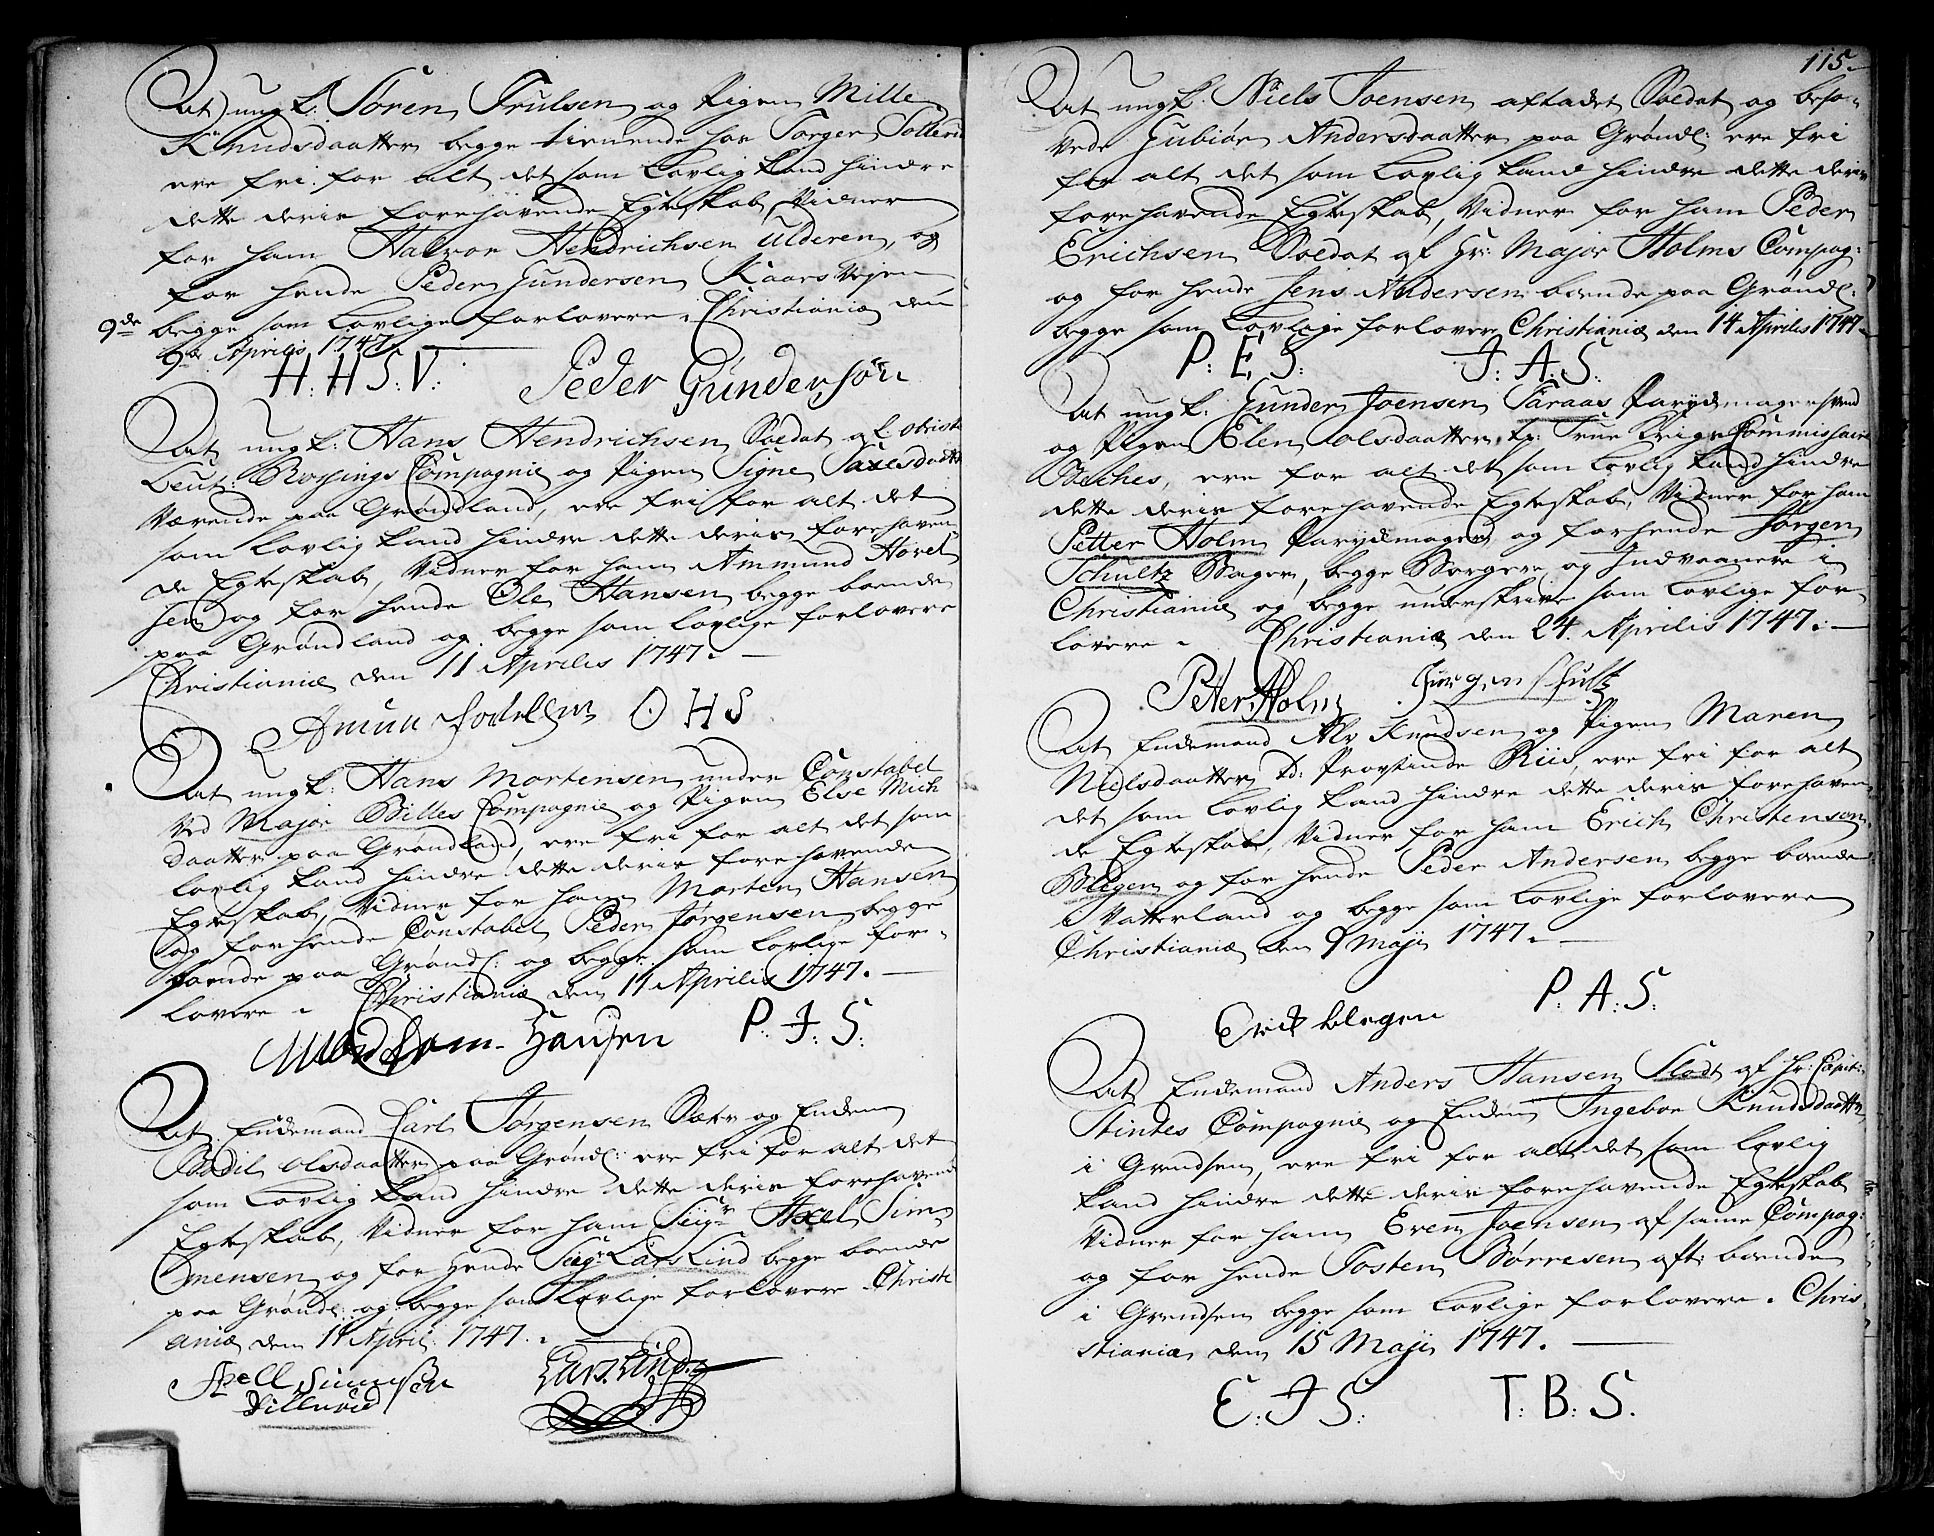 At ungk: Søren Trulsen og Pigen Mille
Knudsdaatter begge tienende hos Torger
ere fri for alt det som Lovlig kand hindre
dette deris forehavende Egteskab, Vidner
for ham Halvor Hendrichsen Ulderen, og
for hende Peder Gundersen Kaars Vejen
begge som Lovlige forlovere. Christianiæ den
9de
9de Aprilis 1747.
H. H. S. V. Peder Günderson
At ungk: Hans Hendrichsen Soldat af Obrist
Leut: Rossings Compagnie og Pigen Signe Saxesdaatt
Værende paa Grøndland, ere fri for alt det
som Lovlig kand hindre dette deris forehaven
de Egteskab, Vidner for ham Ammund Hovel
sen og for hende Ole Hansen begge boende
paa Grøndland og begge som Lovlige forlovere
Christianiæ den 11 Aprilis 1747.
Amun O H S
At ungk: Hans Mortensen under Constabel
Ved Major Billes Compagnie og Pigen Else Mich
daatter paa Grøndland, ere fri for alt det som
lovlig kand hindre dette deris forehavende
Egteskab, Vidner for ham Morten Hansen
og for hende Constabel Peder Jørgensen begge
boende paa Grøndl: og begge som Lovlige for-
lovere. Christianiæ den 11 Aprilis 1747.
Hansen P. J. S.
At Enckemand Carl Jørgensen Sætr og Encken
Bodil Olsdaatter paa Grøndl: ere fri for alt det
som Lovlig kand hindre dette deris forehavend
Egteskab, Vidner for ham Siigr Axel Sim
mensen og for hende Siigr Lars Lind begge boende
paa Grøndl: og begge som Lovlige forlovere Christi
aniæ den 11 April. 1747.
Axell Simmensen Lars Lind
115.
At ungk: Niels Joensen aftadet Soldat og beso-
vede Gubiør Andersdaatter paa Grøndl: ere fri
for alt det som Lovlig kand hindre dette deris
forehavende Egteskab, Vidner for ham Peder
Erichsen Soldat af Hr: Major Holms Compag:
og for hende Jens Andersen boende paa Grøndl:
begge som Lovlige forlovere Christianiæ den 14 Aprilis 1747
P. E. S. J. A. S.
At ungk: Gunder Joensen Saraas Parychmagersvend
og Pigen Elen Olsdaatter, tp: Frue Krigs Commissaire
ere for alt det som Lovlig kand hindre
dette deris forehavende Egteskab, Vidner for ham
Petter Holm Parychmager og for hende Jørgen
Schultz Bager, begge Borgere og Indvaanere i
Christianiæ og begge underskriver som Lovlige for-
lovere. Christianiæ den 24. Aprilis 1747.
Peter Holm Jürgen Schultz
At Enckemand Alv Knudsen og Pigen Maren
Nielsdaatter, td: Provstinde Riis, ere fri for alt
det som Lovlig kand hindre dette deris forehaven
de Egteskab, Vidner for ham Erich Christensen
Blegen og for hende Peder Andersen begge boende
i Vatterland og begge som Lovlige forlovere
Christianiæ den 9 Maji 1747.
Erick blegen P. A. S.
At Enckemand Anders Hansen Slodt af Hr: Capit:
Stindes Compagnie og Encken Ingebor Knudsdaatter
i Grendsen, ere fri for alt det som Lovlig
kand hindre dette deris forehavende Egteskab
Vidner for ham Even Joensen af same Compag:
og for hende Tosten Børresen aft: boende
i Grendsen begge som Lovlige forlovere. Chris-
tianiæ den 15 Maji 1747.
E. J. S. T. B. S.